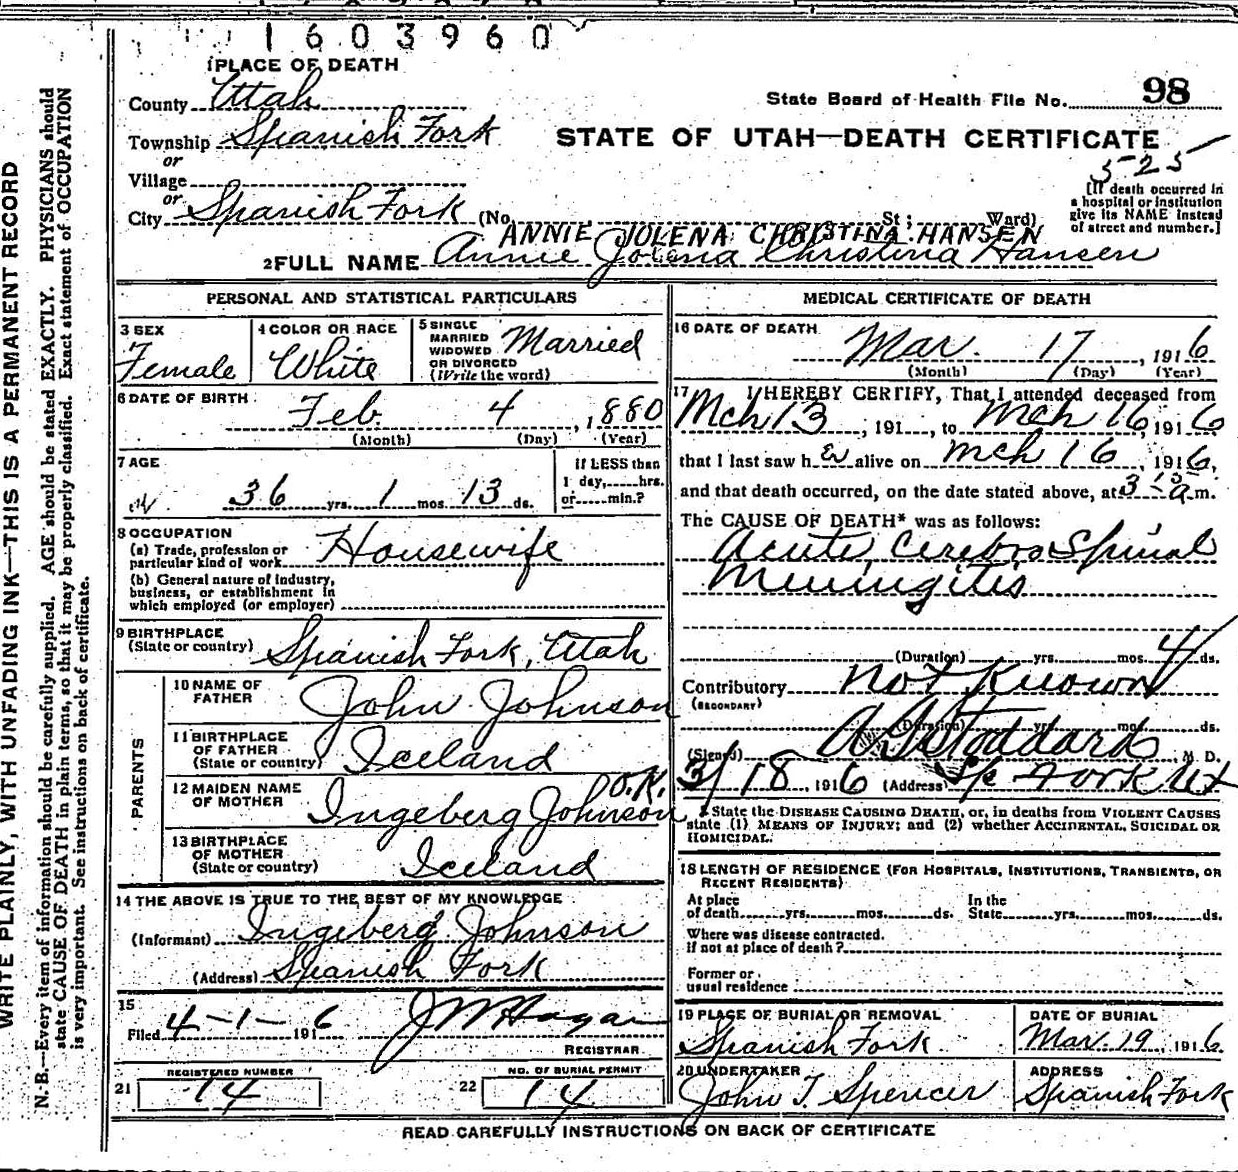 1603960
1 PLACE OF DEATH
County Utah
State Board of Health File No. 98
Township Spanish Fork
STATE OF UTAH—DEATH CERTIFICATE
or
525
Village
or
City Spanish Fork (No. St; Ward)
[If death occurred in
a hospital or institution
give its NAME instead
of street and number.]
ANNIE JOLENA CHRISTINA HANSEN
2 FULL NAME Annie Jolena Christina Hansen
PERSONAL AND STATISTICAL PARTICULARS
3 SEX
Female
4 COLOR OR RACE
White
5 SINGLE
MARRIED
WIDOWED
OR DIVORCED
(Write the word)
Married
6 DATE OF BIRTH
Feb. 4, 1880
(Month) (Day) (Year)
7 AGE
36 yrs. 1 mos. 13 ds.
If LESS than
1 day, hrs.
or min.?
8 OCCUPATION
(a) Trade, profession or
particular kind of work Housewife
(b) General nature of industry,
business, or establishment in
which employed (or employer)
9 BIRTHPLACE
(State or country) Spanish Fork, Utah
PARENTS
10 NAME OF
FATHER John Johnson
11 BIRTHPLACE
OF FATHER
(State or country) Iceland
12 MAIDEN NAME
OF MOTHER Ingeberg Johnson O.K.
13 BIRTHPLACE
OF MOTHER
(State or country) Iceland
14 THE ABOVE IS TRUE TO THE BEST OF MY KNOWLEDGE
(Informant) Ingeberg Johnson
(Address) Spanish Fork
15
Filed 4-1- 1916 J W Hagan
REGISTRAR
REGISTERED NUMBER
21 14
NO. OF BURIAL PERMIT
22 14
MEDICAL CERTIFICATE OF DEATH
16 DATE OF DEATH
Mar. 17, 1916
(Month) (Day) (Year)
17 I HEREBY CERTIFY, That I attended deceased from
Mch 13, 191 , to Mch 16, 1916
that I last saw her alive on Mch 16, 1916,
and that death occurred, on the date stated above, at 3 15 a m.
The CAUSE OF DEATH* was as follows:
Acute Cerebro Spinal
Meningitis
(Duration) yrs. mos. 4 ds.
Contributory Not Known
(SECONDARY)
(Duration) yrs. mos. ds.
(Signed) Stoddard, M. D.
3/18, 1916 (Address) Sp Fork Ut
* State the DISEASE CAUSING DEATH, or, in deaths from VIOLENT CAUSES
state (1) MEANS OF INJURY; and (2) whether ACCIDENTAL, SUICIDAL OR
HOMICIDAL.
18 LENGTH OF RESIDENCE (FOR HOSPITALS, INSTITUTIONS, TRANSIENTS, OR
RECENT RESIDENTS)
At place
of death yrs. mos. ds.
In the
State yrs. mos. ds.
Where was disease contracted.
If not at place of death?
Former or
usual residence
19 PLACE OF BURIAL OR REMOVAL
Spanish Fork
DATE OF BURIAL
Mar. 19, 1916
20 UNDERTAKER
John T. Spencer
ADDRESS
Spanish Fork
READ CAREFULLY INSTRUCTIONS ON BACK OF CERTIFICATE
WRITE PLAINLY, WITH UNFADING INK—THIS IS A PERMANENT RECORD
N. B.—Every item of information should be carefully supplied. AGE should be stated EXACTLY. PHYSICIANS should
state CAUSE OF DEATH in plain terms, so that it may be properly classified. Exact statement of OCCUPATION
is very important. See instructions on back of certificate.